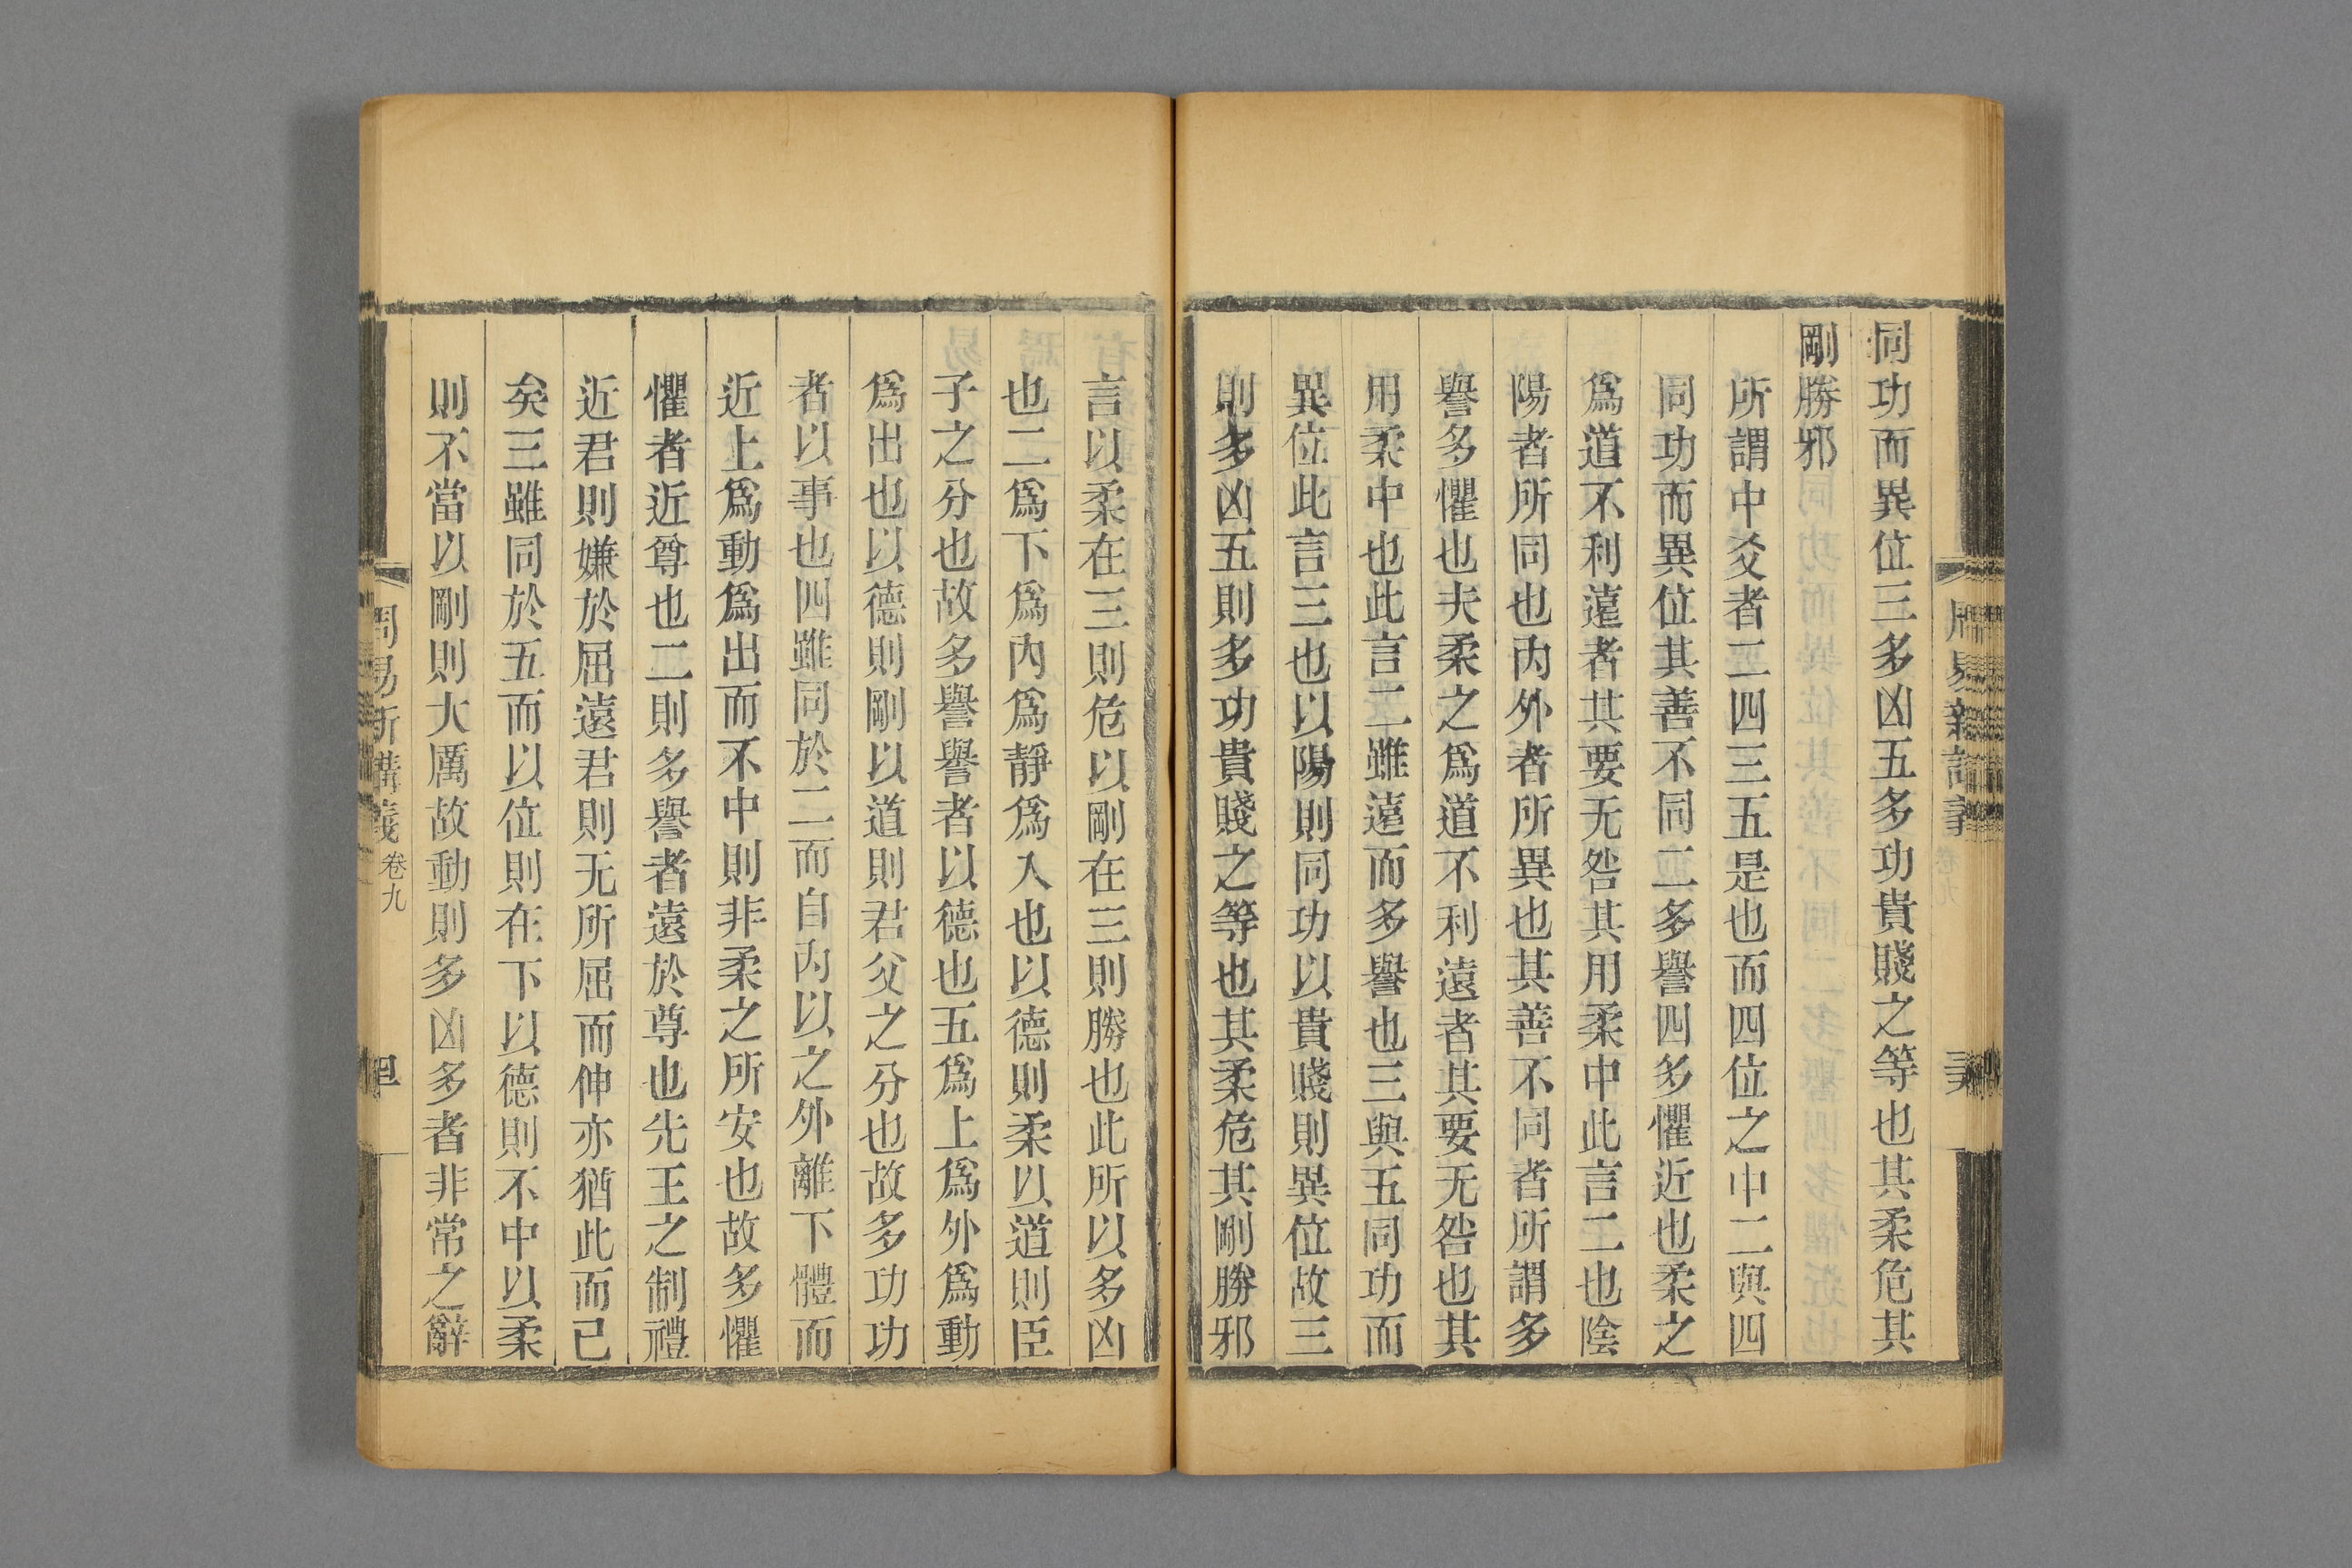 同功而異位三多凶五多功貴賤之等也其柔危其
剛勝邪
所謂中爻者二四三五是也而四位之中二與四
同功而異位其善不同二多譽四多懼近也柔之
爲道不利遠者其要无咎其用柔中此言二也陰
陽者所同也內外者所異也其善不同者所謂多
譽多懼也夫柔之爲道不利遠者其要无咎也其
用柔中也此言二雖遠而多譽也三與五同功而
異位此言三也以陽則同功以貴賤則異位故三
則多凶五則多功貴賤之等也其柔危其剛勝邪
言以柔在三則危以剛在三則勝也此所以多凶
也二爲下爲內爲靜爲入也以德則柔以道則臣
子之分也故多譽譽者以德也五爲上爲外爲動
爲出也以德則剛以道則君父之分也故多功功
者以事也四雖同於二而自內以之外離下體而
近上爲動爲出而不中則非柔之所安也故多懼
懼者近尊也二則多譽者遠於尊也先王之制禮
近君則嫌於屈遠君則无所屈而伸亦猶此而已
矣三雖同於五而以位則在下以德則不中以柔
則不當以剛則大厲故動則多凶多者非常之辭
周易新講義 卷九